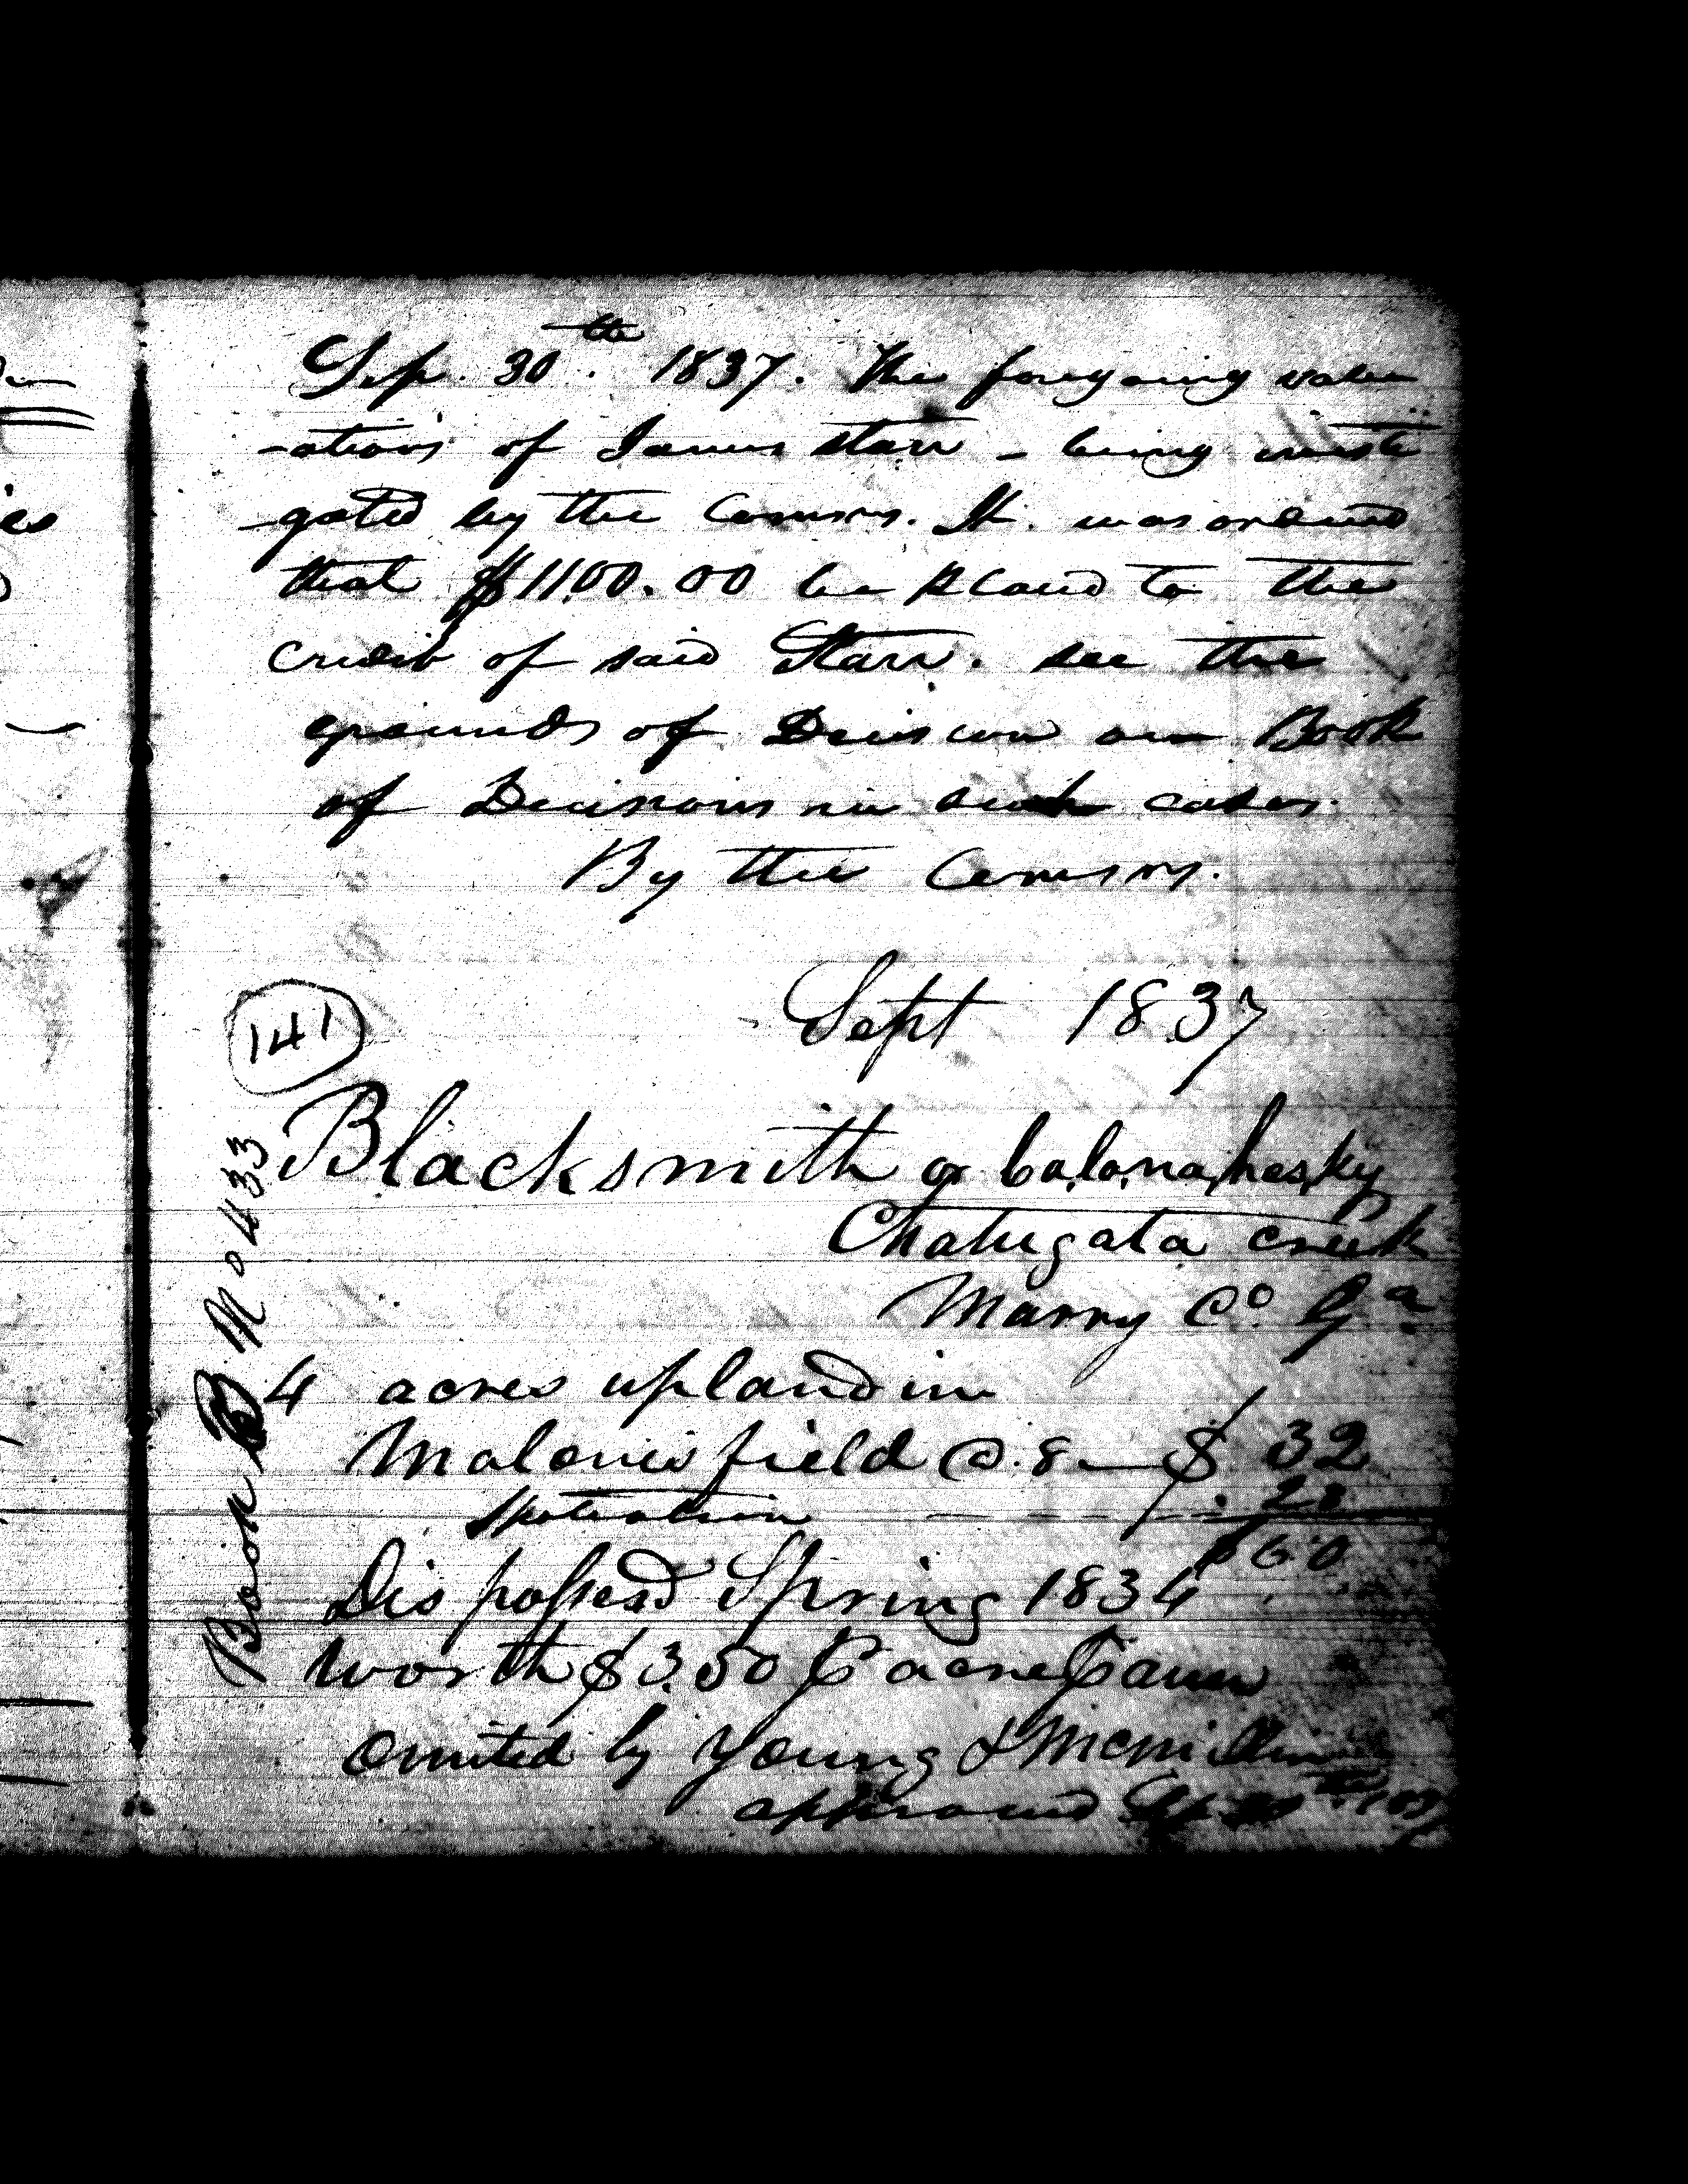 Sep. 30th. 1837. The foregoing valu
-ations of James Starr - being investi
-gated by the Commrs. It. was ordered
that $1100.00 be placed to the
credit of said Starr. see the
grounds of Decision on Book
of Decisions in such cases.
By the Commrs.
141
Sept 1837
Blacksmith or
Chatugata creek
Marry Co. Ga
4 acres upland in
Malones field @ 8 — $ 32
spoliation - - - - 28
$60
Dispossessed Spring 1834
worth $3.50 P acre P ann
Omited by Young & McMillin
approved Sep
Book B. No 433